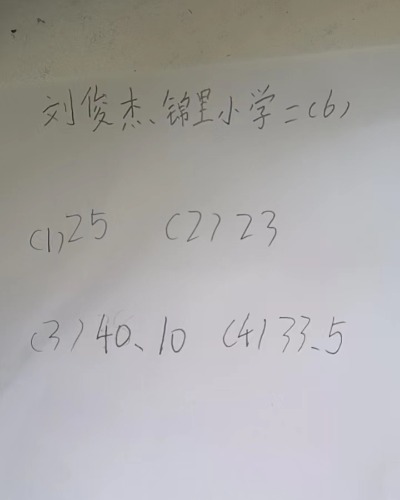 刘俊杰、锦里小学二(6)
(1)25 (2)23
(3)40、10 (4)33、5